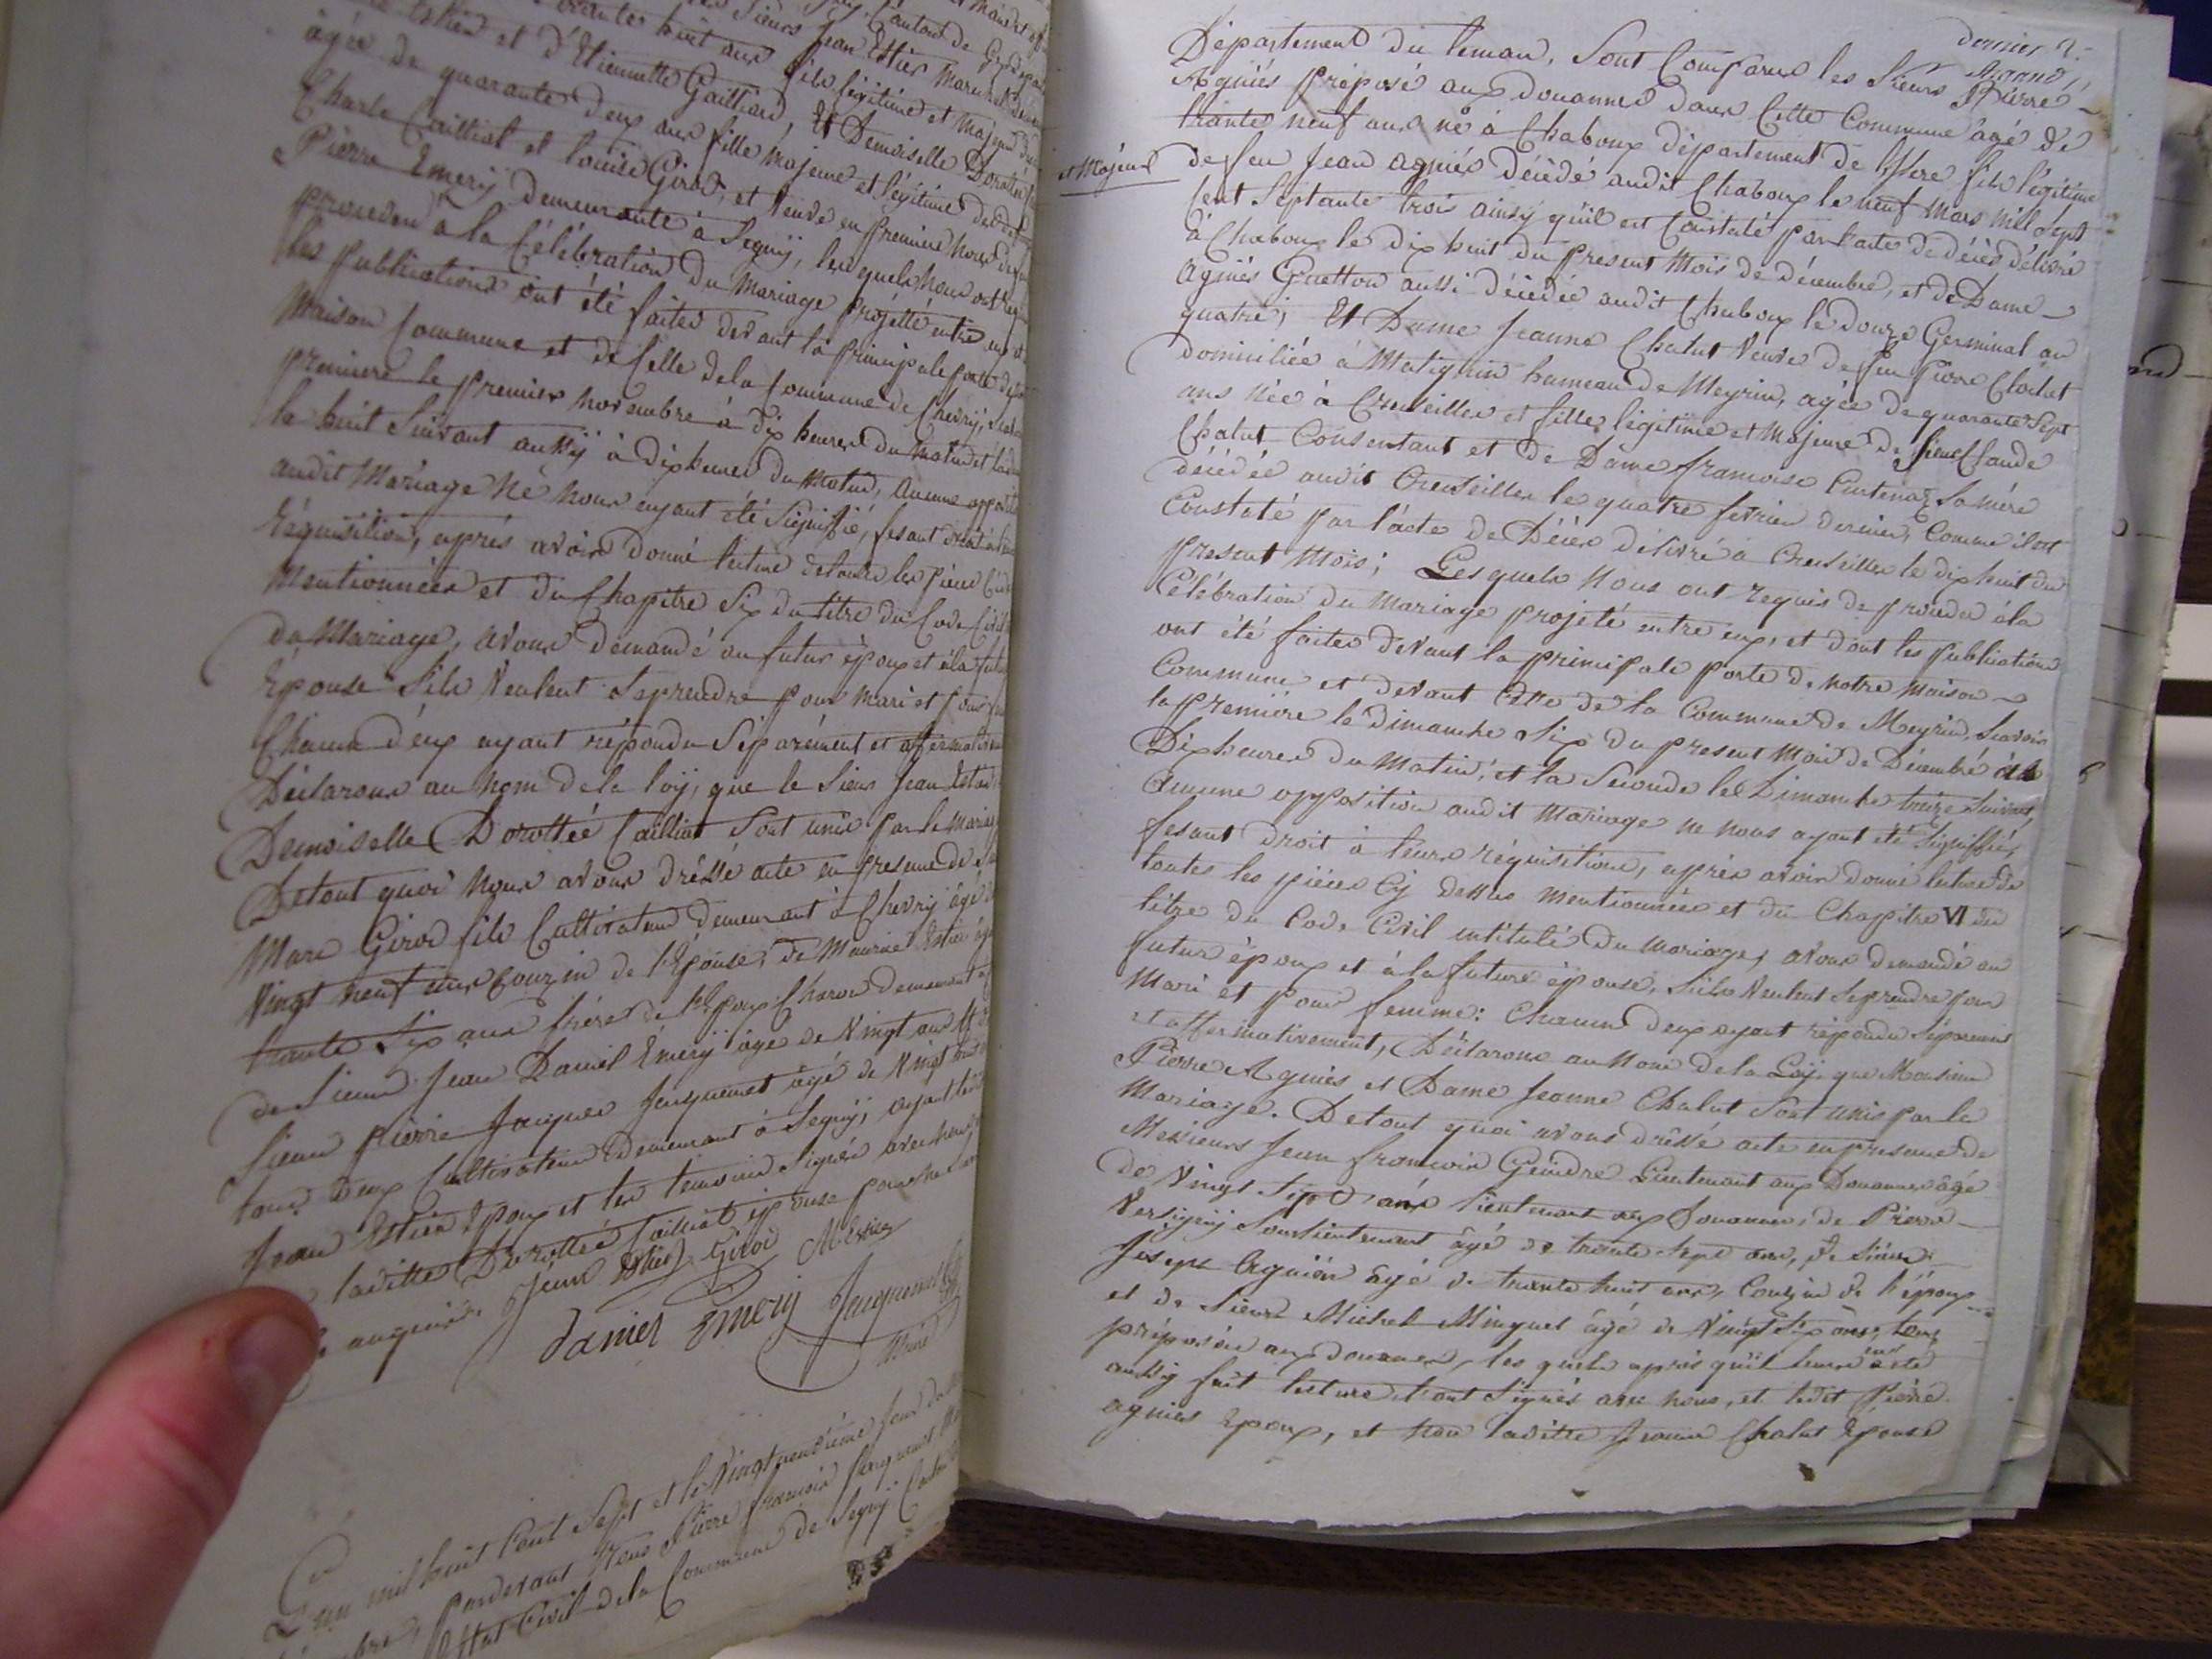 Sieurs Jean Estier Marechal
et d'Etiennette Gailliard, Et Demoiselle Dorottée
âgée de quarante deux ans fille majeure et légitime de
Charle Cailliat et louise Girod, et Veuve en première Noces de
Pierre Emerÿ demeurante à Segnÿ, lesquels nous ont
proceder à la Célébration du Mariage projetté entre eux
les publications ont été faites devant la principale porte de
Maison Commune et de Celle de la Commune de Chevrÿ,
premiere le premier Novembre à dix heures du Matin et
le huit Suivant aussÿ à dix heures du Matin, Aucune
audit Mariage Ne nous ayant été Signiffié, fesant droit à
Réquisition, après avoir donné lecture de toutes les pièces
Mentionnées et du Chapitre Six du titre du Code Civil
du Mariage, avons demandé au futur époux et à la
Epouse S'ils Veulent Se prendre pour Mari et pour
Chacun d'eux ayant répondu Séparément et
Déclarons au Nom de la loÿ, que le Sieur Jean Estier
Demoiselle Dorottée Cailliat Sont unis par le Mariage
De tout quoi Nous avons dréssé acte en presence de
Marc Girod fils Cultivateur demeurant à Chevrÿ âgé
Vingt neuf ans Couzin de l'Epouse, de Maurice Estier
trante Six ans frère de l'Epoux Charon demeurant
de Sieur Jean Daniel Emerÿ âgé de Vingt ans Et
Sieur Pierre Jacques Jacquemet âgé de Vingt
tous deux Cultivateurs Demeurant à Segnÿ, ayant
Jean Estier Epoux et les temoins Signés avec nous
laditte Dorottée Cailliat épouse pour ne
Jean Estier Girod M Estier
daniel Emerÿ Jacquemet
Maire
L'an mil huit Cent Sept et le Vingt neuvième jour de
pardevant Nous Pierre francois Jacquemet
l'Etat Civil de la Commune de Segnÿ Canton
Département du Leman, Sont Comparus les Sieurs Pierre
Agniés préposé aux douannes dans Cette Commune âgé de
trante neuf ans né à Chaboux département de l'Isere fils légitime
et Majeur
de feu Jean Agniés Décédé audit Chaboux le neuf Mars Mill Sept
Cent Septante trois ainsÿ qu'il est Constaté par l'acte de décès délivré
à Chaboux le dix huit du present Mois de décembre, et de Dame
Agniés Guetton aussi décédée audit Chaboux le douze Germinal an
quatre; Et Dame Jeanne Chalut Veuve de feu Pierre
domiciliée à Matignin hameau de Meyrin, agée de quarante Sept
ans Née à Cruseilles et fille légitime et Majeure de Sieur Claude
Chalut Consentant et de Dame francoise Sa mére
décédée audit Cruseilles le quatre fevrier dernier, Comme il est
Constaté par l'acte de Décès délivré à Cruseilles le dix huit du
present Mois; Lesquels Nous ont requis de proceder à la
Célébration du Mariage projeté entre eux, et dont les publications
ont été faites devant la principale porte de notre Maison
Commune et devant Celle de la Commune de Meyrin, Scavoir
la premiere le Dimanche Six du present Mois de Décembre à
Dix heures du Matin, et la Seconde le Dimanche treize Suivant,
Aucune opposition audit Mariage ne nous ayant été Signiffié,
fesant droit à leurs réquisitions, après avoir donné lecture de
toutes les pièces Cÿ dessus mentionnées et du Chapitre VI du
titre du Code Civil intitulé du mariage, avons demandé au
futur époux et à la future épouse, S'ils Veulent Se prendre pour
Mari et pour femme: Chacun d'eux ayant répondu Séparement
et affermativement, Déclarons au Nom de la Loÿ, que Monsieur
Pierre Agniés et Dame Jeanne Chalut Sont unis par le
Mariage. De tout quoi avons dréssé acte en presence de
Messieurs Jean francois Geindre Lieutenant aux Douannes âgé
de Vingt Sept ans lieutenant aux Douannes, de Pierre
Souslieutenant âgé de trante Sept ans, de Sieur
Joseph Agniés âgé de trante huit ans, Couzin de l'époux
et de Sieur Michel Minguet âgé de Vingt Six ans, tous
préposés aux douannes, les quels après qu'il leur en a été
aussÿ fait lecture, l'ont Signés avec nous, et ledit Pierre
agniés Epoux, et non laditte Jeanne Chalut Epouse